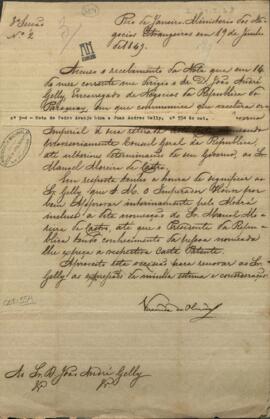 3ª Secção
Nº 2
Rio de Janeiro Ministerio dos Negocios Estrangeiros em 19 de Junho
de 1849.
Accuso o recebimento da Nota que em 14
do mez corrente me dirigio o Sr D. João André
Gelly, Encarregado de Negocios da Republica do
Paraguay, em que communica que
Imperial á sua retirada
provisoriamente Consul Geral da Republica,
até ulterior determinação do seu Governo, ao Sr
Manuel Moreira de Castro.
Em resposta tenho a honra de significar ao
Sr Gelly que S. M. O Imperador Houve por
bem Approvar interinamente pelo
a dita nomeação do Sr Manuel Moreira
de Castro, até que o Presidente da Republica
tendo conhecimento da pessoa nomeada
lhe expeça a respectiva Carta Patente.
Aproveito esta occasião para renovar ao Sr
Gelly as expressões da minha estima e consideração.
Visconde de Olinda
Ao Sr D. João André Gelly